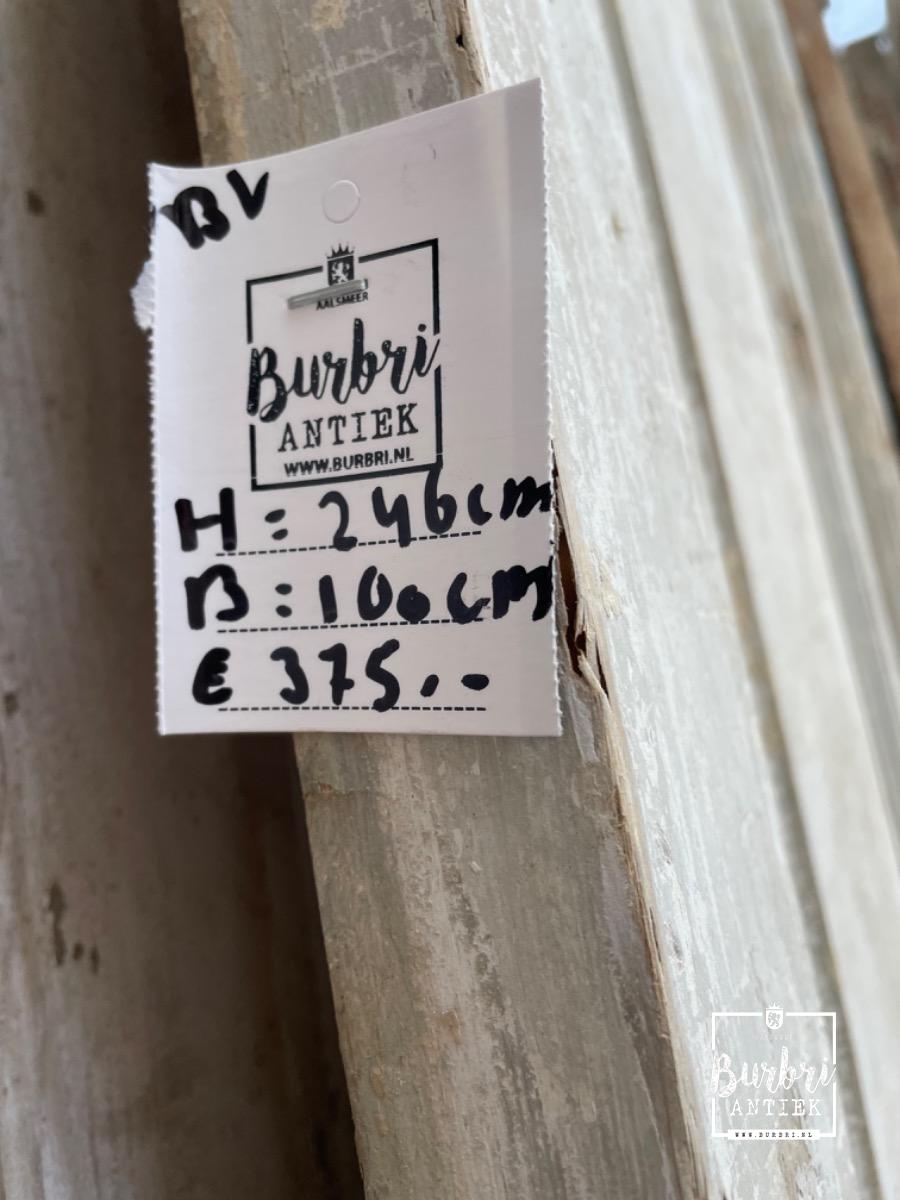 BV
AALSMEER
Burbri
ANTIEK
WWW.BURBRI.NL
H = 246cm
B : 100cm
€ 375.-
Burbri
ANTIEK
WWW.BURBRI.NL